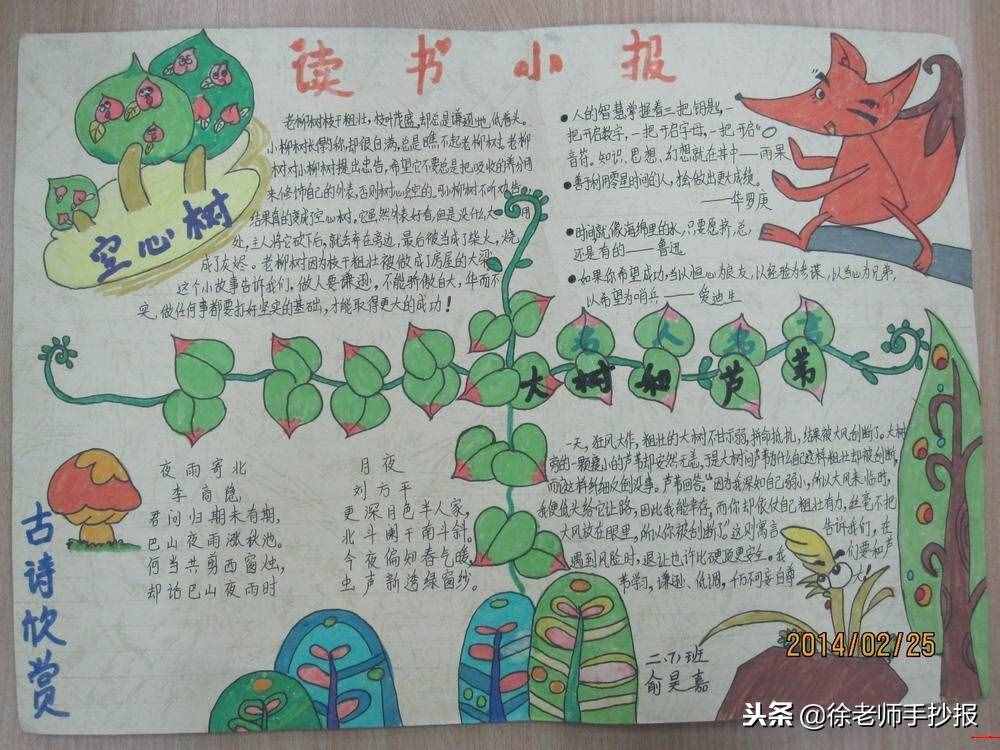 读书小报
空心树
老柳树枝干粗壮,枝叶茂盛,却总是谦逊地低着头。
小柳树长得
却很自满,总是瞧不起老柳树。老柳
树对小柳树提出忠告,希望它不要总是把吸收的养分用
来修饰自己的外表,否则树心会空的。可小柳树不听劝告,
结果真的变成了空心树。它虽然外表好看但是没什么大用
处,主人将它砍下后,就去弃在旁边,最后被当成了柴火,烧
成了灰烬。老柳树因为枝干粗壮被做成了房屋的大梁。
这个小故事告诉我们,做人要谦逊,不能骄傲自大,华而不
实,做任何事都要打好坚实的基础,才能取得更大的成功!
人的智慧掌握着三把钥匙,一
把开启数字,一把开启字母,一把开启
音符。知识、思想、幻想就在其中——雨果
善于利用零星时间的人,才会做出更大成绩。
——华罗庚
时间就像海绵里的水,只要愿挤,总
还是有的——鲁迅
如果你希望成功,当以恒心为良友,以经验为参谋,以当心为兄弟,
以希望为哨兵——爱迪生
名人名言
大树和芦苇
一天,狂风大作,粗壮的大树不甘示弱,拼命抵抗,结果被大风刮断了。大树
旁的一颗矮小的芦苇却安然无恙,于是大树问芦苇为什么自己这样粗壮却被刮断,
而这样纤细却没事。芦苇回答:“因为我深知自己弱小,所以大风来临时,
我便低头给它让路,因此我能幸存,而你却依仗自己粗壮有力,丝毫不把
大风放在眼里,所以你被刮断了。”这则寓言告诉我们,在
遇到风险时,退让也许比硬顶更安全。我们要和芦
苇学习,谦逊、低调,千万不可妄自尊大!
夜雨寄北
李商隐
君问归期未有期,
巴山夜雨涨秋池。
何当共剪西窗烛,
却话巴山夜雨时
月夜
刘方平
更深月色半人家,
北斗阑干南斗斜。
今夜偏知春气暖,
虫声新透绿窗纱。
古诗欣赏
二.(7)班
俞昊嘉
2014/02/25
头条 @徐老师手抄报